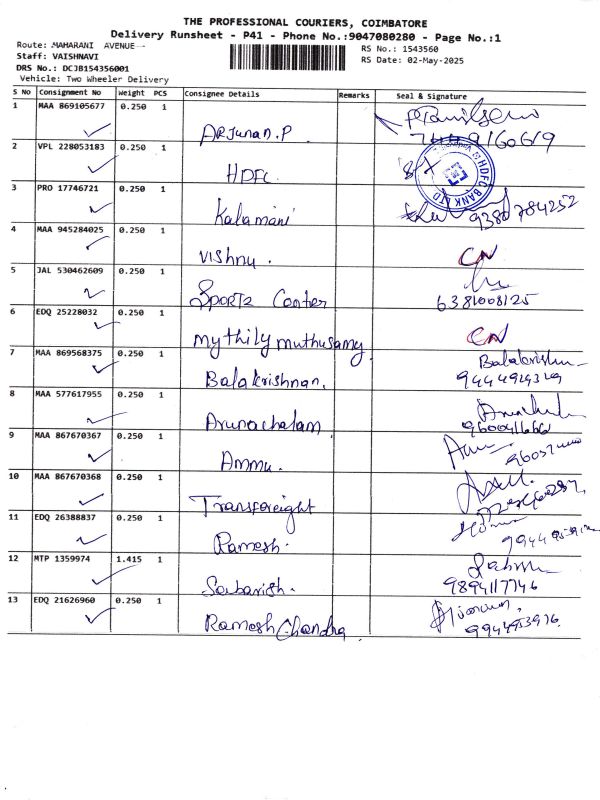 THE PROFESSIONAL COURIERS, COIMBATORE
Delivery Runsheet - P41 - Phone No.:9047080280 - Page No.:1
Route: MAHARANI AVENUE
Staff: VAISHNAVI
DRS No.: DCJB154356001
Vehicle: Two Wheeler Delivery
RS No.: 1543560
RS Date: 02-May-2025
S No Consignment No Weight PCS Consignee Details Remarks Seal & Signature
1 MAA 869105677 0.250 1 Arjunan.P
2 VPL 228053183 0.250 1 HDFC HDFC BANK LTD
3 PRO 17746721 0.250 1 Kalamani 9380784252
4 MAA 945284025 0.250 1 Vishnu. CN
5 JAL 530462609 0.250 1 Sports Center 6381008125
6 EDQ 25228032 0.250 1 Mythily muthusamy CN
7 MAA 869568375 0.250 1 Balakrishnan. Balakrishn
8 MAA 577617955 0.250 1 Arunachalam
9 MAA 867670367 0.250 1 Ammu.
10 MAA 867670368 0.250 1 Transforeight
11 EDQ 26388837 0.250 1 Ramesh.
12 MTP 1359974 1.415 1 Sabarish. 9894117746
13 EDQ 21626960 0.250 1 Ramesh Chandra